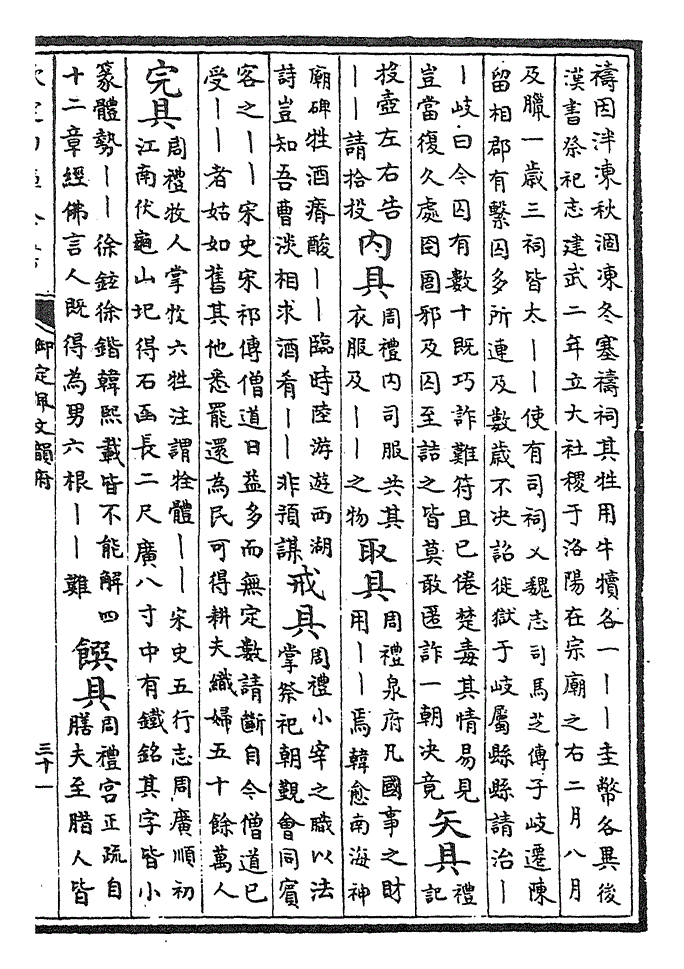 禱因泮凍秋涸凍冬塞禱祠其牲用牛犢各一｜｜圭幣各異後
漢書祭祀志建武二年立大社稷于洛陽在宗廟之右二月八月
及臘一歲三祠皆太｜｜使有司祠又魏志司馬芝傳子岐遷陳
留相郡有繫囚多所連及數歲不決詔徙獄于岐屬縣縣請治｜
｜岐曰今囚有數十既巧詐難符且已倦楚毒其情易見
豈當復久處囹圄邪及囚至詰之皆莫敢匿詐一朝決竟
矢具
禮
記
投壺左右告
｜｜請拾投
內具
周禮內司服共其
衣服及｜｜之物
取具
周禮泉府凡國事之財
用｜｜焉韓愈南海神
廟碑牲酒瘠酸｜｜臨時陸游遊西湖
詩豈知吾曹淡相求酒肴｜｜非預謀
戒具
周禮小宰之職以法
掌祭祀朝覲會同賓
客之｜｜宋史宋祁傳僧道日益多而無定數請斷自今僧道已
受｜｜者姑如舊其他悉罷還為民可得耕夫織婦五十餘萬人
完具
周禮牧人掌牧六牲注謂牷體｜｜宋史五行志周廣順初
江南伏龜山圯得石函長二尺廣八寸中有鐵銘其字皆小
篆體勢｜｜徐鉉徐鍇韓熙載皆不能解四
十二章經佛言人既得為男六根｜｜難
饌具
周禮宮正疏自
膳夫至腊人皆
御定佩文韻府
三十一